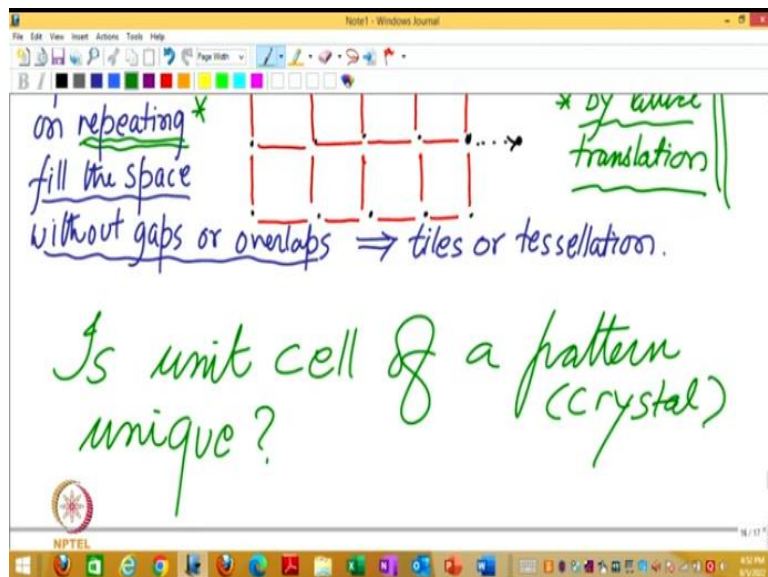 Note1 - Windows Journal
File Edit View Insert Actions Tools Help
Page Width
B I
on repeating *
fill the space
without gaps or overlaps ⇒ tiles or tessellation.
* by lattice
translation
Is unit cell of a pattern
(crystal)
unique?
NPTEL
16 / 17
4:52 PM